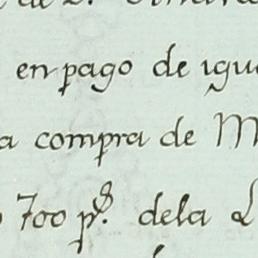 en pago de igu
a compra de M
700 p.s dela L